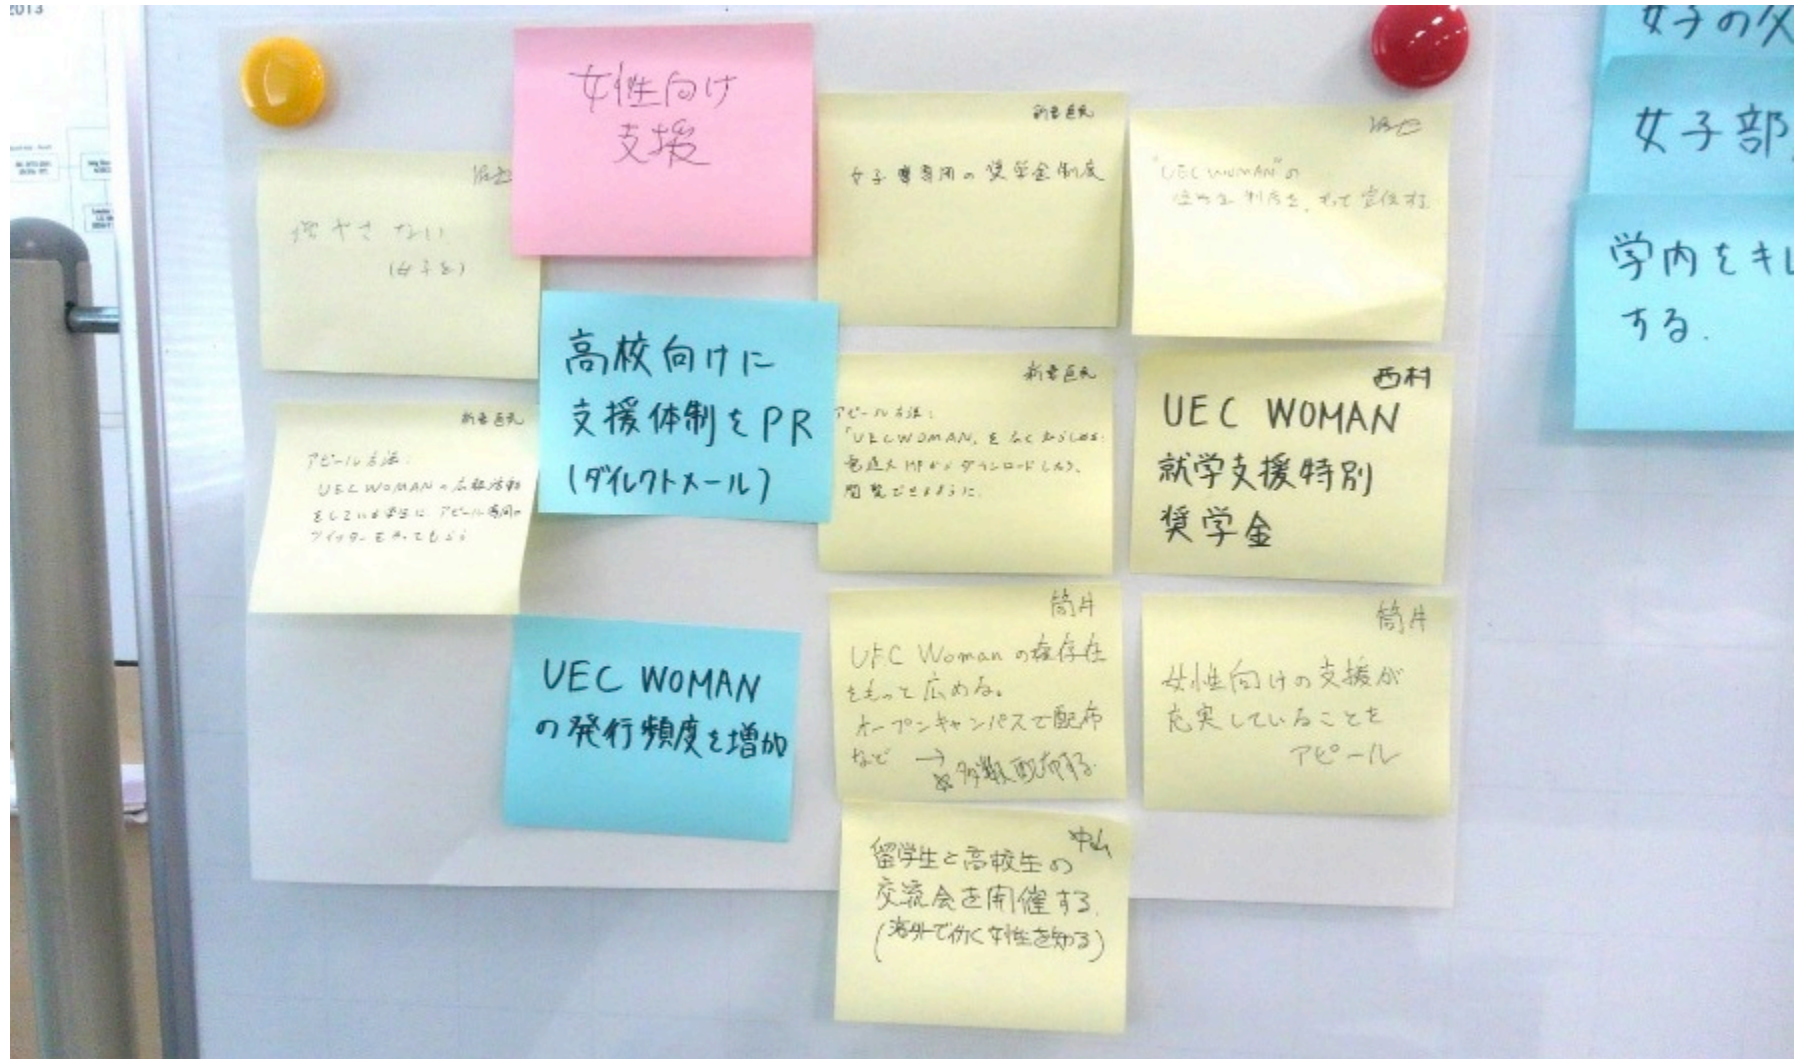 2013
女性向け
支援
増やさない
(女子を)
女子専用の奨学金制度
"UEC WOMAN"の
制度を、もって宣伝する
高校向けに
支援体制をPR
(ダイレクトメール)
アピール方法:
UEC WOMANの広報活動
をしている学生に アピール専用の
ツイッターをやってもらう
アピール方法:
「UEC WOMAN」を広く
電通大HPからダウンロードしたり、
閲覧できるように.
西村
UEC WOMAN
就学支援特別
奨学金
UEC WOMAN
の発行頻度を増加
筒井
UEC Woman の存在
をもっと広める。
オープンキャンパスで配布
など → 多数配布する.
筒井
女性向けの支援が
充実していることを
アピール
中山
留学生と高校生の
交流会を開催する.
(海外で働く女性を知る)
女子の
女子部
学内をキレ
する.